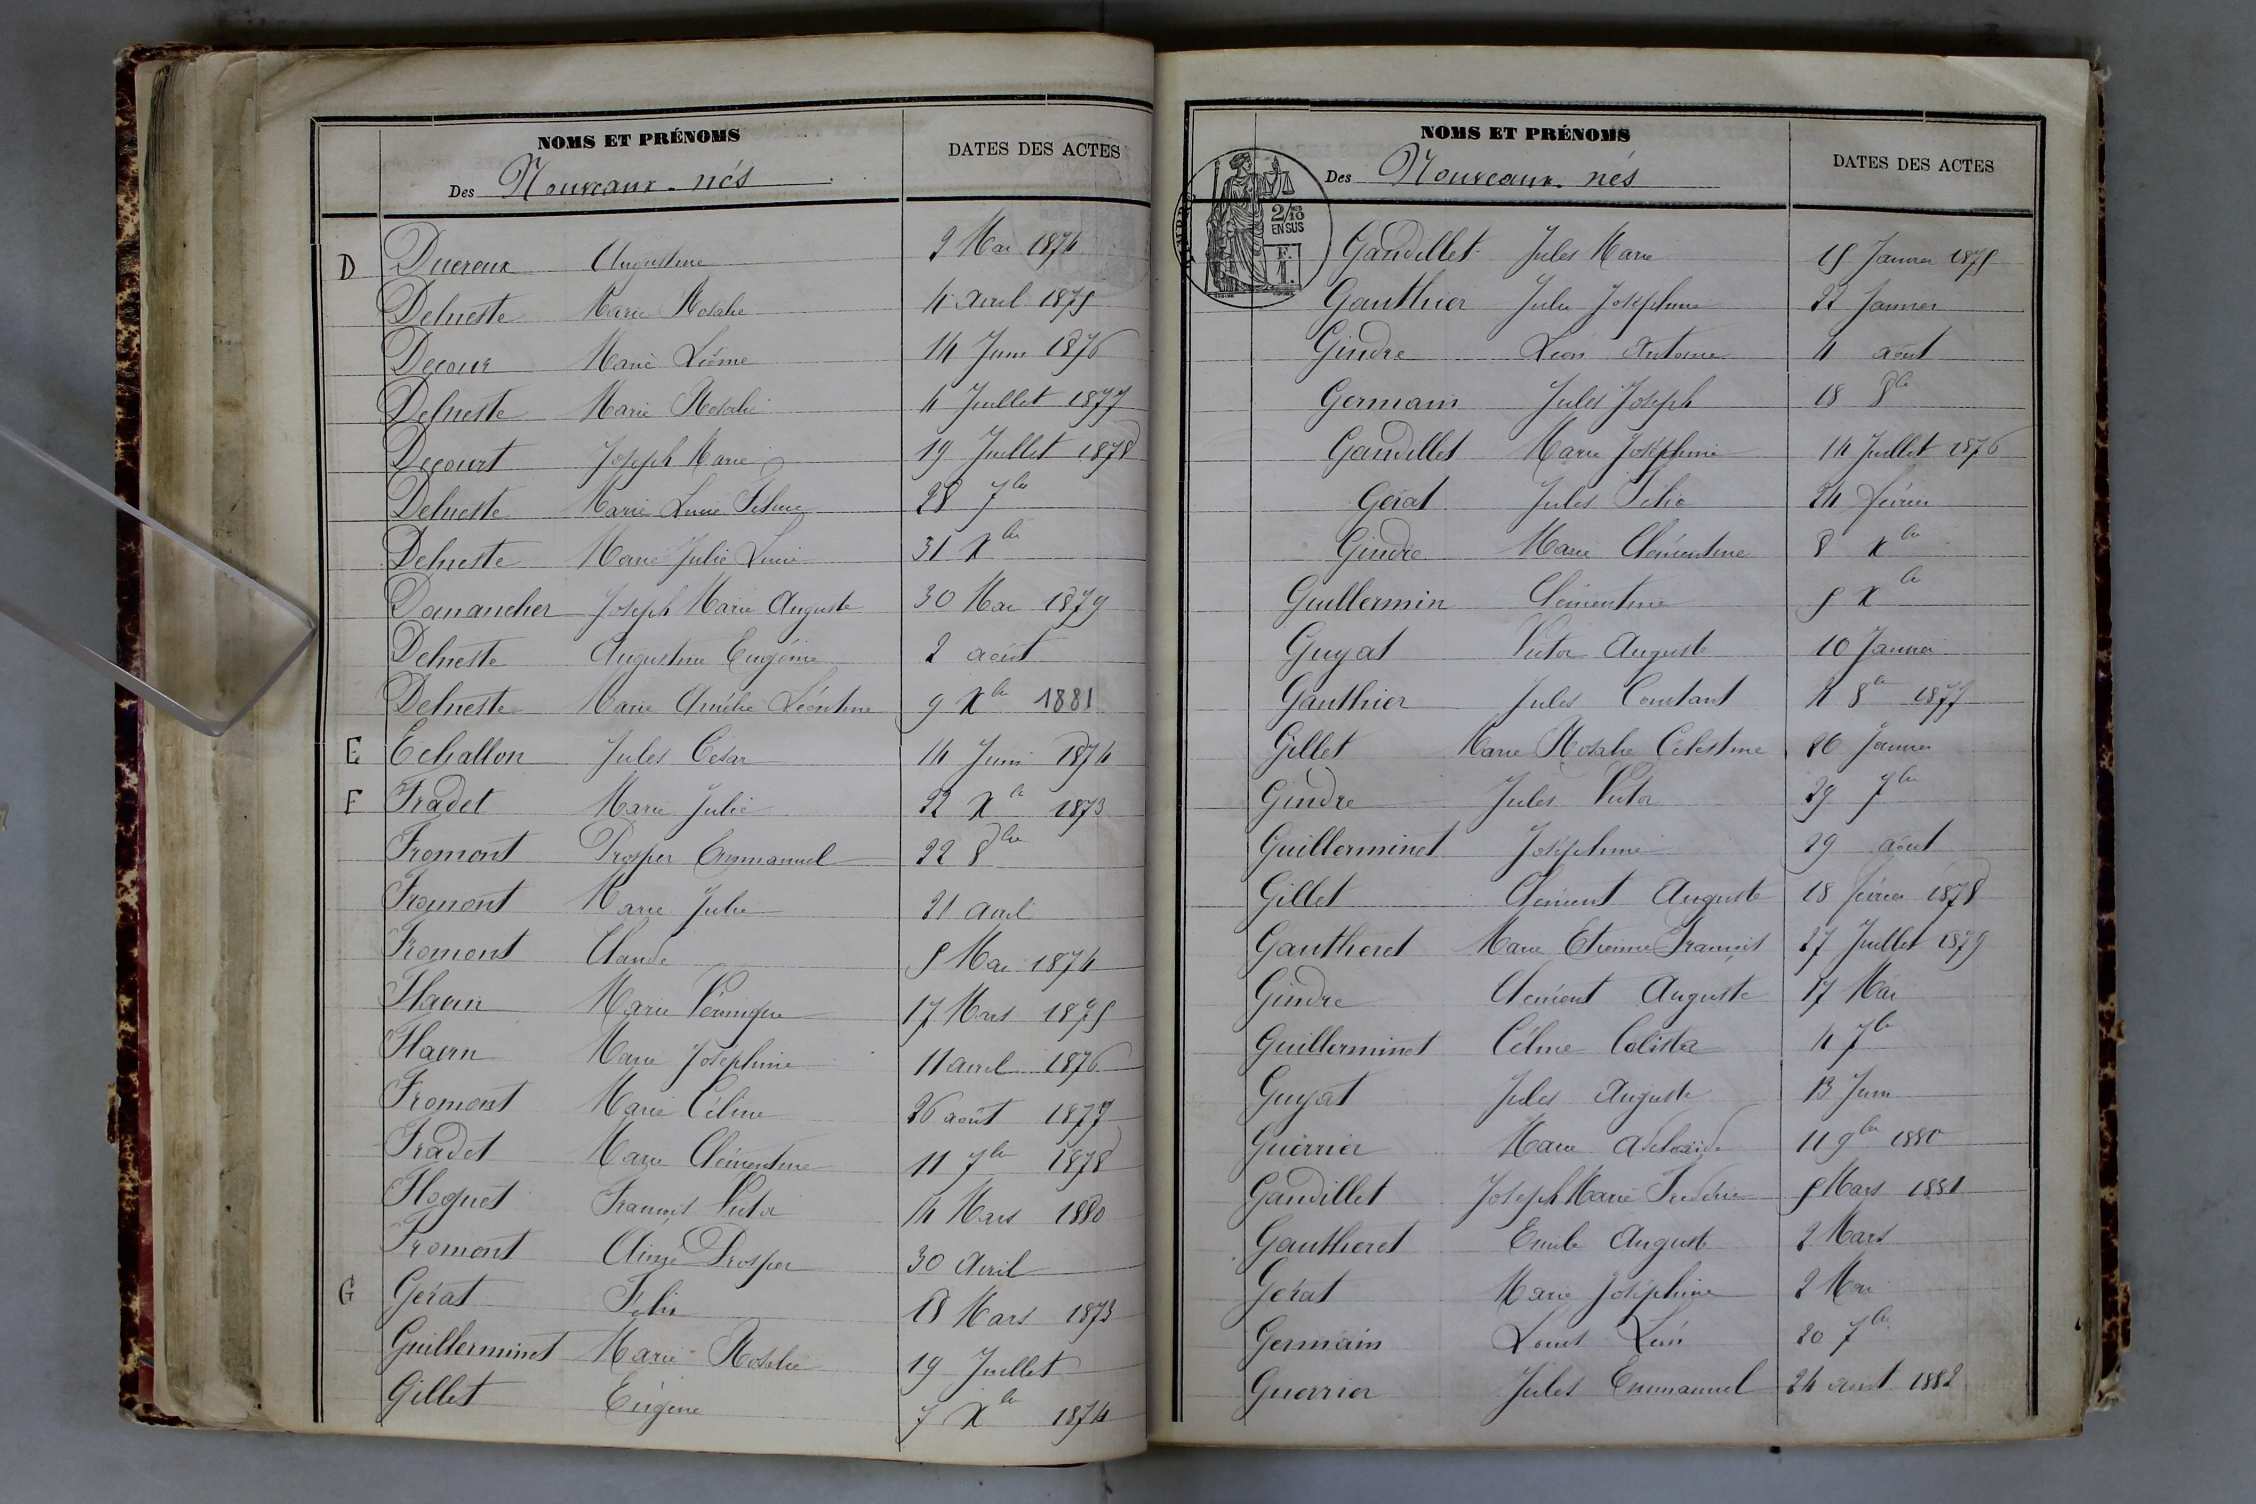 NOMS ET PRÉNOMS
DATES DES ACTES
Des Nouveaux-nés
D Ducreux Augustine 2 Mai 1874
Delneste Marie Rosalie 4 avril 1875
Decour Marie Léonie 14 Juin 1876
Delneste Marie Rosalie 4 Juillet 1877
Decourt Joseph Marie 19 Juillet 1878
Delneste Marie Lucie 28 7bre
Delneste Marie Julie Lucie 31 Xbre
Domancher Joseph Marie Auguste 30 Mai 1879
Delneste Augustine Eugénie 2 août
Delneste Marie Amélie Léontine 9 Xbre 1881
E Echallon Jules César 14 Juin 1874
F Fradet Marie Julie 22 Xbre 1873
Fromont Prosper Emmanuel 22 8bre
Fromont Marie Julie 21 avril
Fromont Claude 5 Mai 1874
Flaein Marie Véronique 17 Mars 1875
Flaein Marie Joséphine 11 avril 1876
Fromont Marie Céline 26 août 1877
Fradet Marie Clémentine 11 7bre 1878
Floquet François Victor 14 Mars 1880
Fromont Aimé Prosper 30 Avril
G Gérat Félix 18 Mars 1873
Guillerminet Marie-Rosalie 19 Juillet
Gillet Eugène 7 Xbre 1874
NOMS ET PRÉNOMS
DATES DES ACTES
Des Nouveaux-nés
2/10
EN SUS
F.
1
Gandillet Jules Marie 15 Janvier 1875
Gauthier Julie Joséphine 22 Janvier
Gindre Léon Antoine 4 août
Germain Jules Joseph 18 8bre
Gandillet Marie Joséphine 14 Juillet 1876
Gérat Jules Félix 24 février
Gindre Marie Clémentine 8 Xbre
Guillermin Clémentine 5 Xbre
Guyat Victor Auguste 10 Janvier
Gauthier Jules Constant 4 8bre 1877
Gillet Marie Rosalie Célestine 26 Janvier
Gindre Jules Victor 29 7bre
Guillerminet Joséphine 29 août
Gillet Clément Auguste 18 février 1878
Gautheret Marie Etienne François 27 Juillet 1879
Gindre Clément Auguste 17 Mai
Guillerminet Céline Calista 4 7bre
Guyat Jules Auguste 13 Juin
Guerrier Marie Adelaïde 11 9bre 1880
Gandillet Joseph Marie Frédéric 5 Mars 1881
Gautheret Emile Auguste 2 Mars
Gérat Marie Joséphine 2 Mai
Germain Louis Léon 20 7bre
Guerrier Jules Emmanuel 24 août 1882